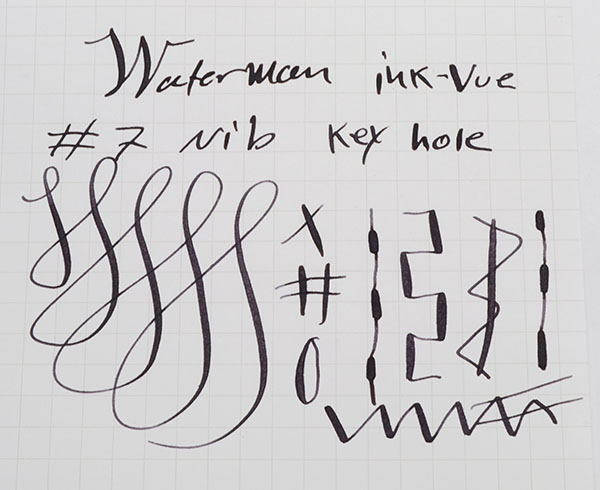 Waterman ink-Vue
#7 Nib Key hole
X
#
O